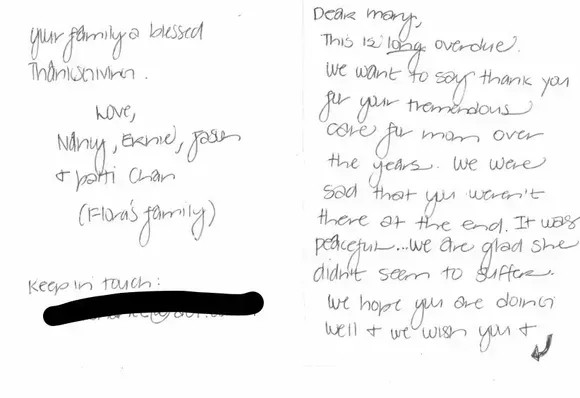 Dear mary,
This is long overdue.
We want to say thank you
for your tremendous
care for mom over
the years. We were
sad that you weren't
there at the end. It was
peaceful...we are glad she
didn't seem to suffer.
We hope you are doing
well + we wish you +
your family a blessed
Thanksgiving.
Love,
Nancy, Ernie, Jason
+ patti Chan
(Flora's family)
Keep in touch: